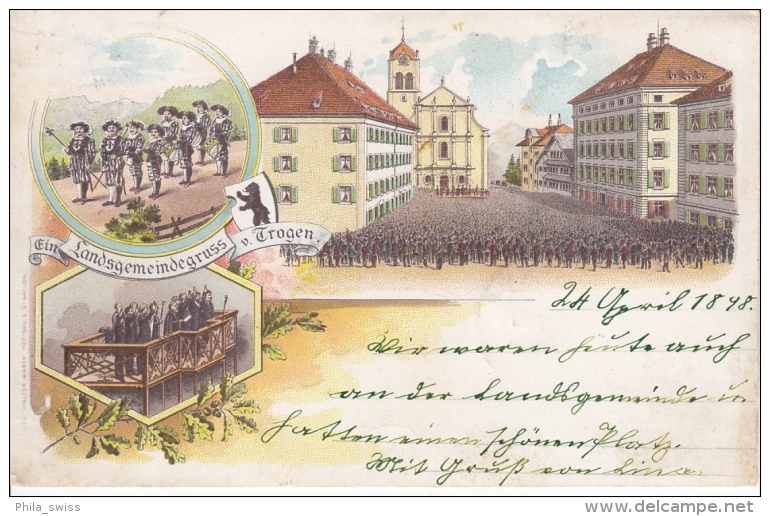 Ein Landsgemeindegruss v. Trogen.
24 April 1898.
Wir waren heute auch
an der Landsgemeinde u
hatten einen schönen Platz.
Mit Gruß von Lina.
Phila_swiss
delcampe.net